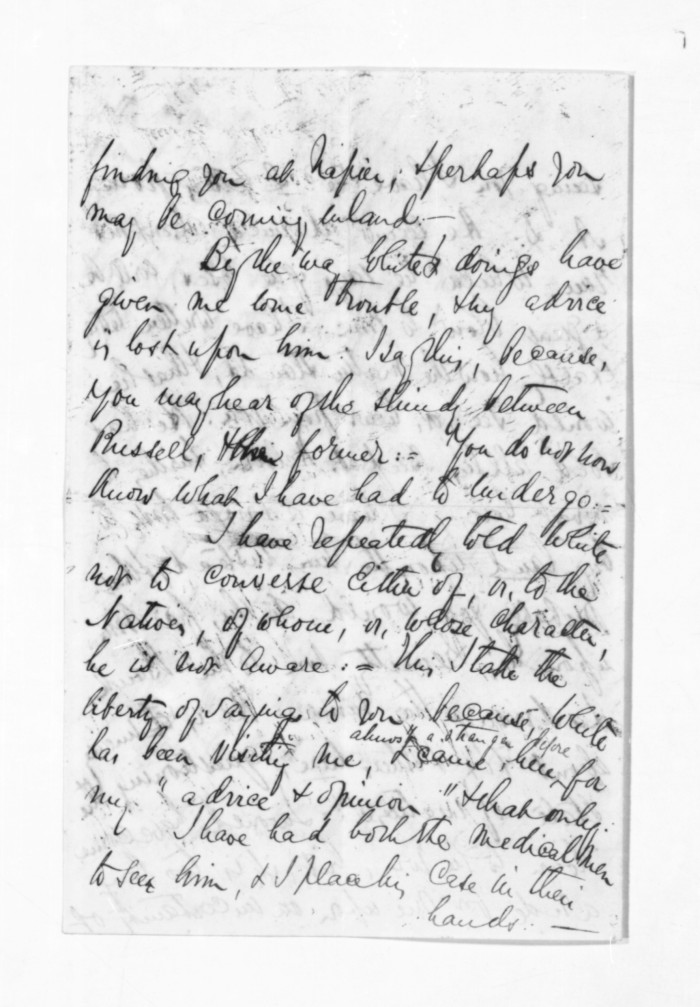 finding you at Napier; & perhaps you
may be coming inland —
By the way White's doings have
given me some trouble, & my advice
is lost upon him: I say this, because,
you may hear of the shindy between
Russell, & the former := You do not now
know what I have had to undergo :=
I have repeatedly told White
not to converse either of, or, to the
Natives, of whom, or, whose character,
he is not aware := This I take the
liberty of saying to you because, White
almost a stranger before
has been visiting me, & came here for
my "advice & opinion" & that only.
I have had both the medical men
to see him, & I place his case in their
hands. —